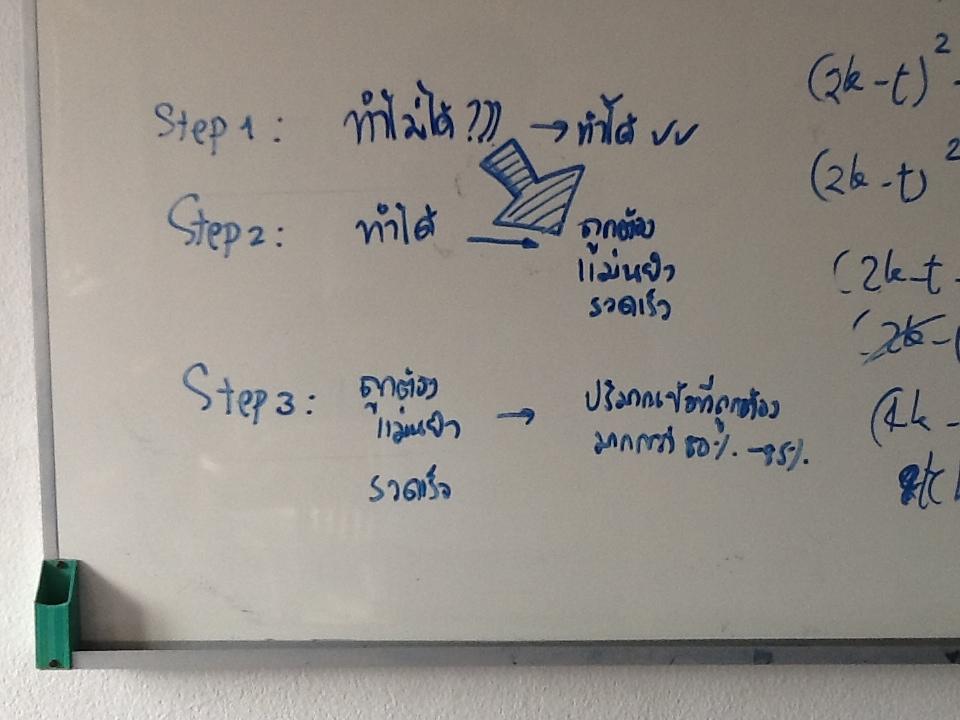 Step 1: ทำไม่ได้ ??? → ทำได้ ✓✓
Step 2: ทำได้ → ถูกต้อง
แม่นยำ
รวดเร็ว
Step 3: ถูกต้อง
แม่นยำ → ปริมาณข้อที่ถูกต้อง
มากกว่า 80% - 85%
รวดเร็ว
(2k-t)²-
(2k-t)²
(2k-t-
(4k-